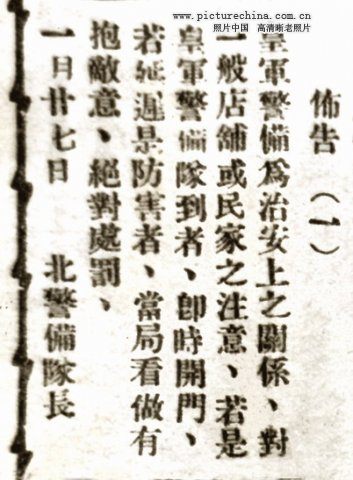 www.picturechina.com.cn
照片中国 高清晰老照片
佈告（一）
皇軍警備為治安上之關係、對
一般店舖或民家之注意、若是
皇軍警備隊到者、卽時開門、
若延遲是防害者、當局看做有
抱敵意、絕對處罰、
一月廿七日 北警備隊長